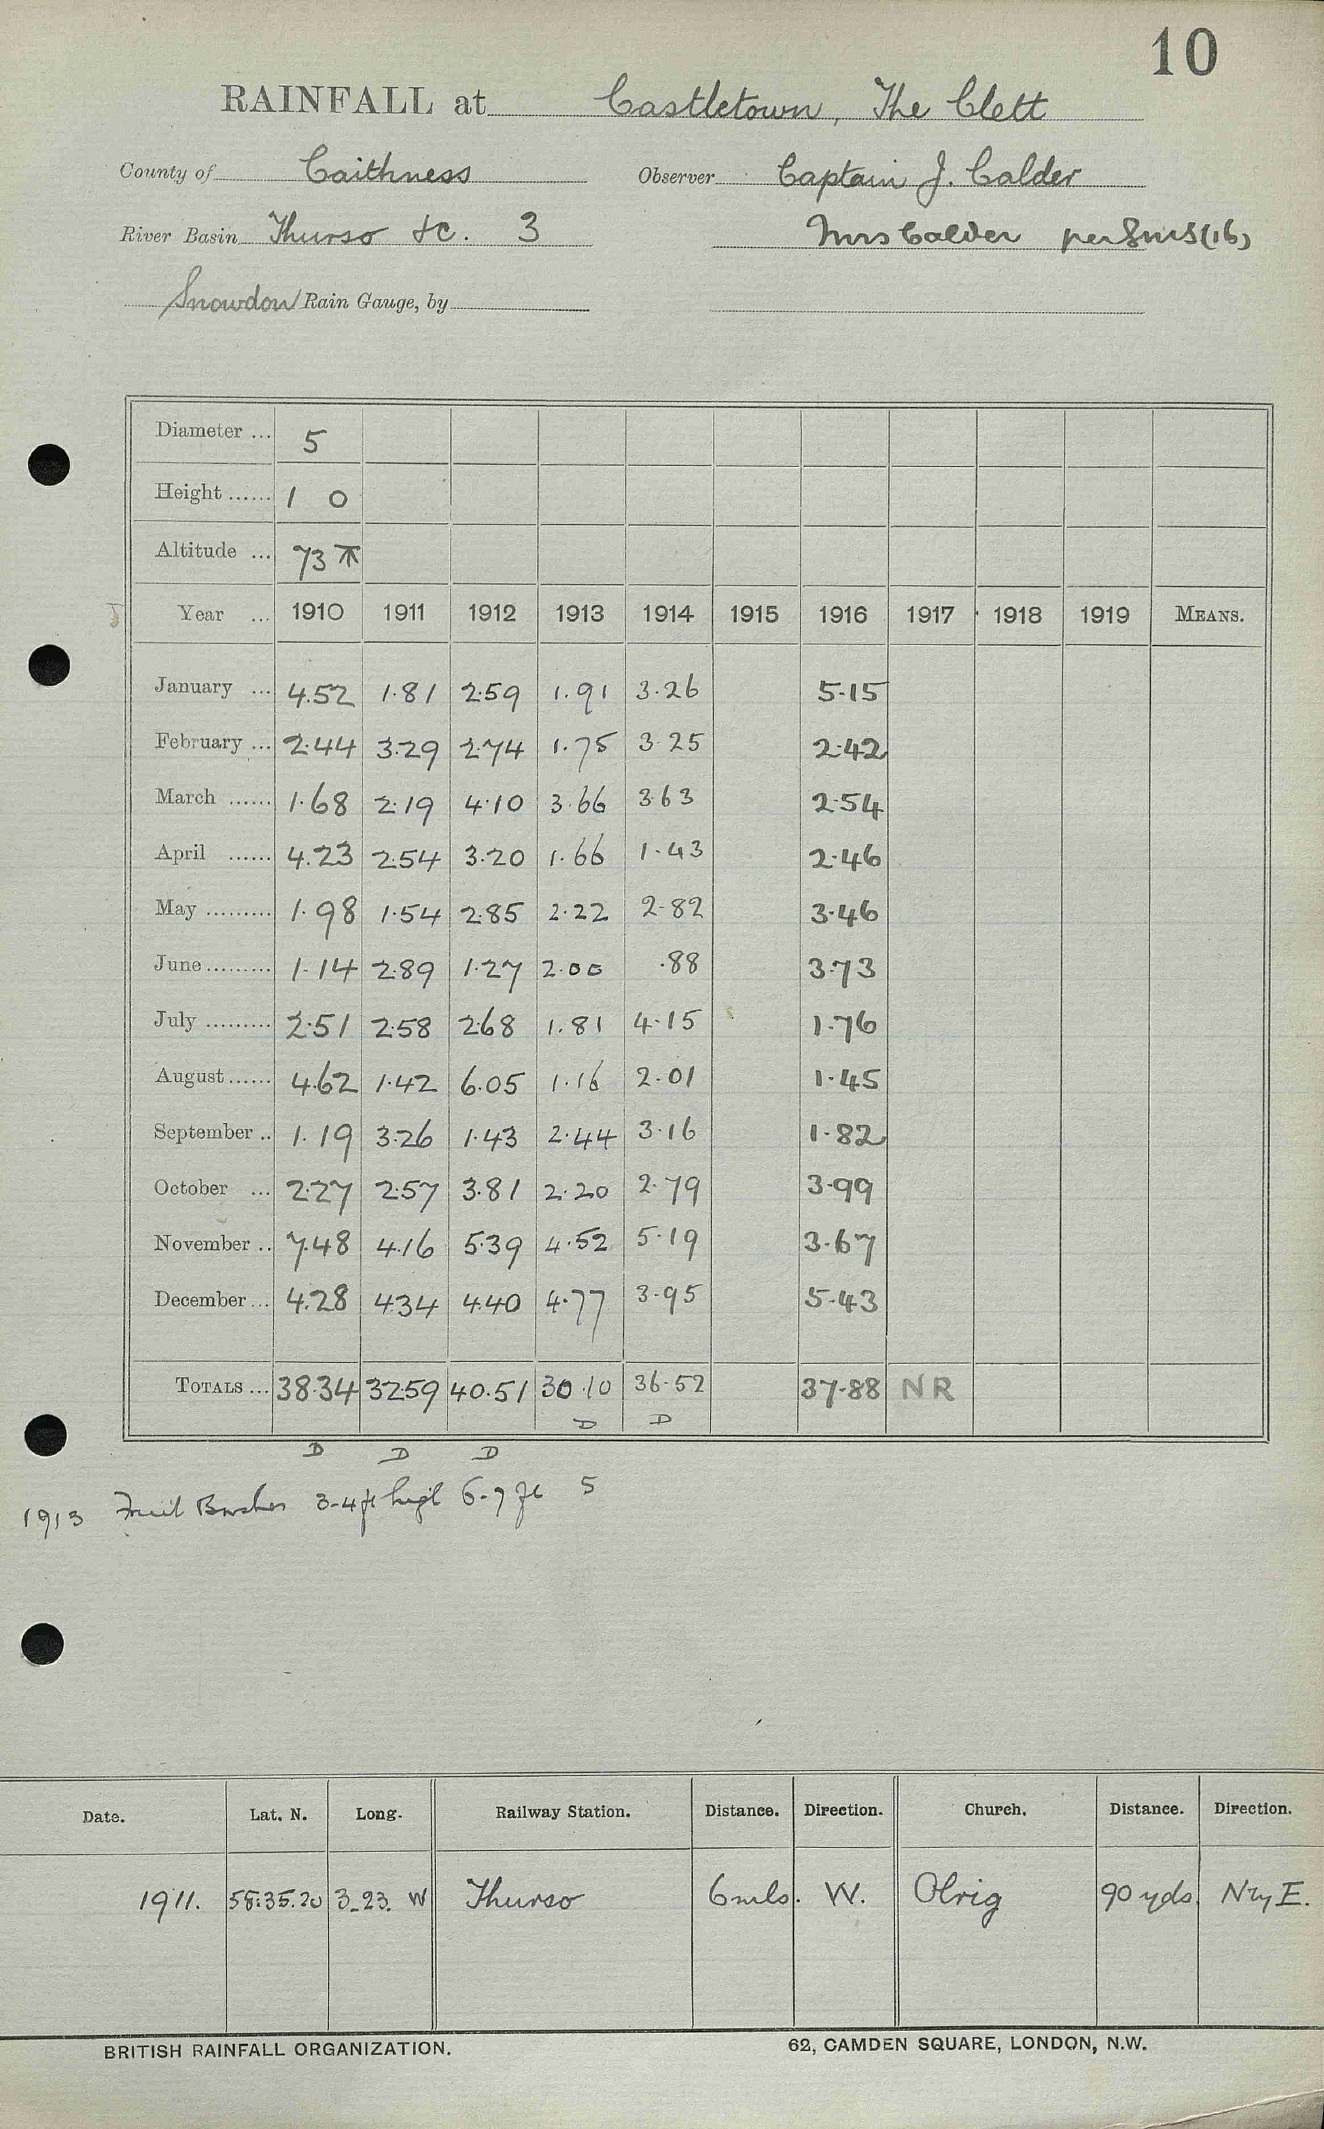 10
RAINFALL at Castletown, The Clett
County of Caithness Observer Captain J. Calder
River Basin Thurso &c. 3 Mrs Calder per (16)
Snowdon Rain Gauge, by
Diameter ... 5
Height ...... 1 0
Altitude ... 73
Year ... 1910 1911 1912 1913 1914 1915 1916 1917 1918 1919 MEANS.
January ... 4.52 1.81 2.59 1.91 3.26 5.15
February ... 2.44 3.29 2.74 1.75 3.25 2.42
March ...... 1.68 2.19 4.10 3.66 3.63 2.54
April ...... 4.23 2.54 3.20 1.66 1.43 2.46
May ......... 1.98 1.54 2.85 2.22 2.82 3.46
June ......... 1.14 2.89 1.27 2.00 .88 3.73
July ......... 2.51 2.58 2.68 1.81 4.15 1.76
August ...... 4.62 1.42 6.05 1.16 2.01 1.45
September .. 1.19 3.26 1.43 2.44 3.16 1.82
October ... 2.27 2.57 3.81 2.20 2.79 3.99
November .. 7.48 4.16 5.39 4.52 5.19 3.67
December ... 4.28 4.34 4.40 4.77 3.95 5.43
TOTALS ... 38.34 32.59 40.51 30.10 36.52 37.88 NR
D D
D D D
1913 Fruit Bushes 3-4 ft high 6-7 ft 5
Date. Lat. N. Long. Railway Station. Distance. Direction. Church. Distance. Direction.
1911. 58.35.20 3.23. W Thurso 6 mls. W. Olrig 90 yds. N by E.
BRITISH RAINFALL ORGANIZATION. 62, CAMDEN SQUARE, LONDON, N.W.